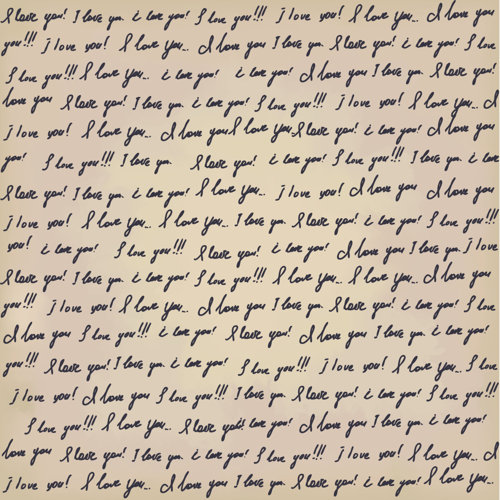 I love you! I love you. i love you! I love you!!! i love you! I love you... I love you
you!!! i love you! I love you... I love you I love you. I love you! i love you! I love
I love you!!! I love you... i love you! i love you! I love you I love you. I love you!
love you I love you! I love you. i love you! I love you!!! i love you! I love you... I
i love you! I love you... I love you I love you... I love you! i love you! I love you
you! I love you!!! I love you. I love you! i love you! I love you!!! I love you. i love
I love you! I love you. i love you! I love you... i love you! I love you I love you
i love you! I love you... I love you... I love you. I love you! i love you! I love you!!!
you! i love you! I love you!!! I love you! i love you! I love you I love you. i love
I love you! I love you. i love you! I love you!!! I love you... I love you... I love you
you!!! i love you! I love you... I love you I love you. I love you! i love you! I love
I love you I love you!!! i love you! I love you! I love you I love you. i love you!
you!!! I love you! I love you. i love you! I love you!!! i love you! I love you... I love
i love you! I love you... I love you I love you!!! I love you. I love you! i love you! I love you!!!
I love you!!! I love you... I love you! i love you! I love you I love you. i love you!
love you I love you! I love you. i love you! I love you!!! i love you! I love you... I
i love you! I love you... I love you I love you. I love you! i love you! I love you...